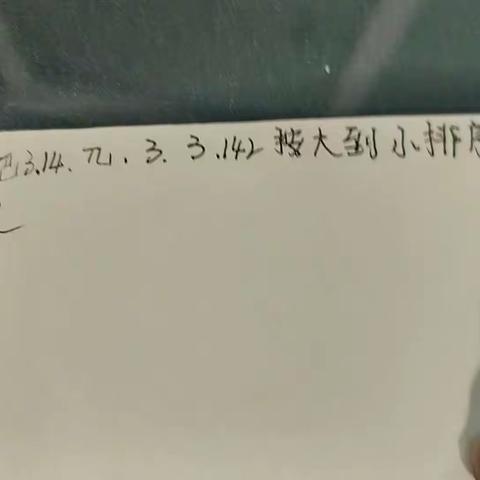 把3.14、π、3、3.142按大到小排序